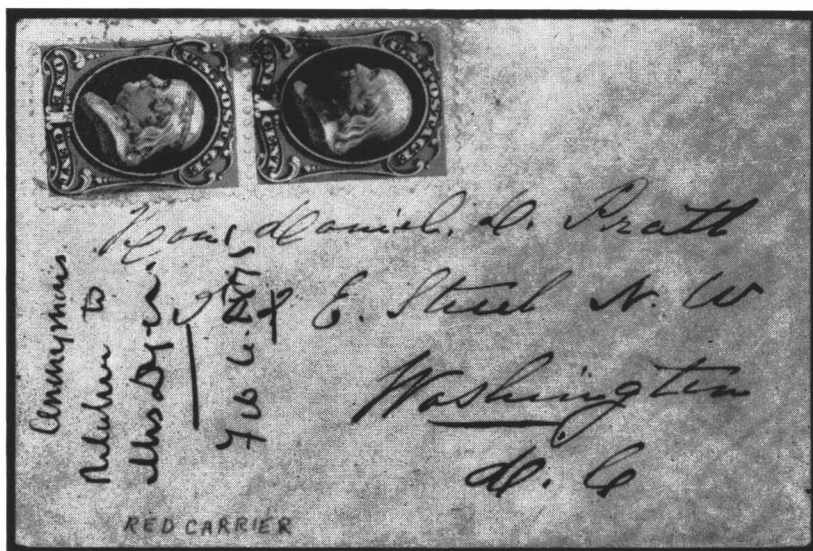 U.S. POSTAGE
ONE CENT
U.S. POSTAGE
ONE CENT
Hon. Daniel. D. Pratt
E. Street N. W
Washington
D. C
Anonymous
Relative to
Mrs Dyer
RED CARRIER